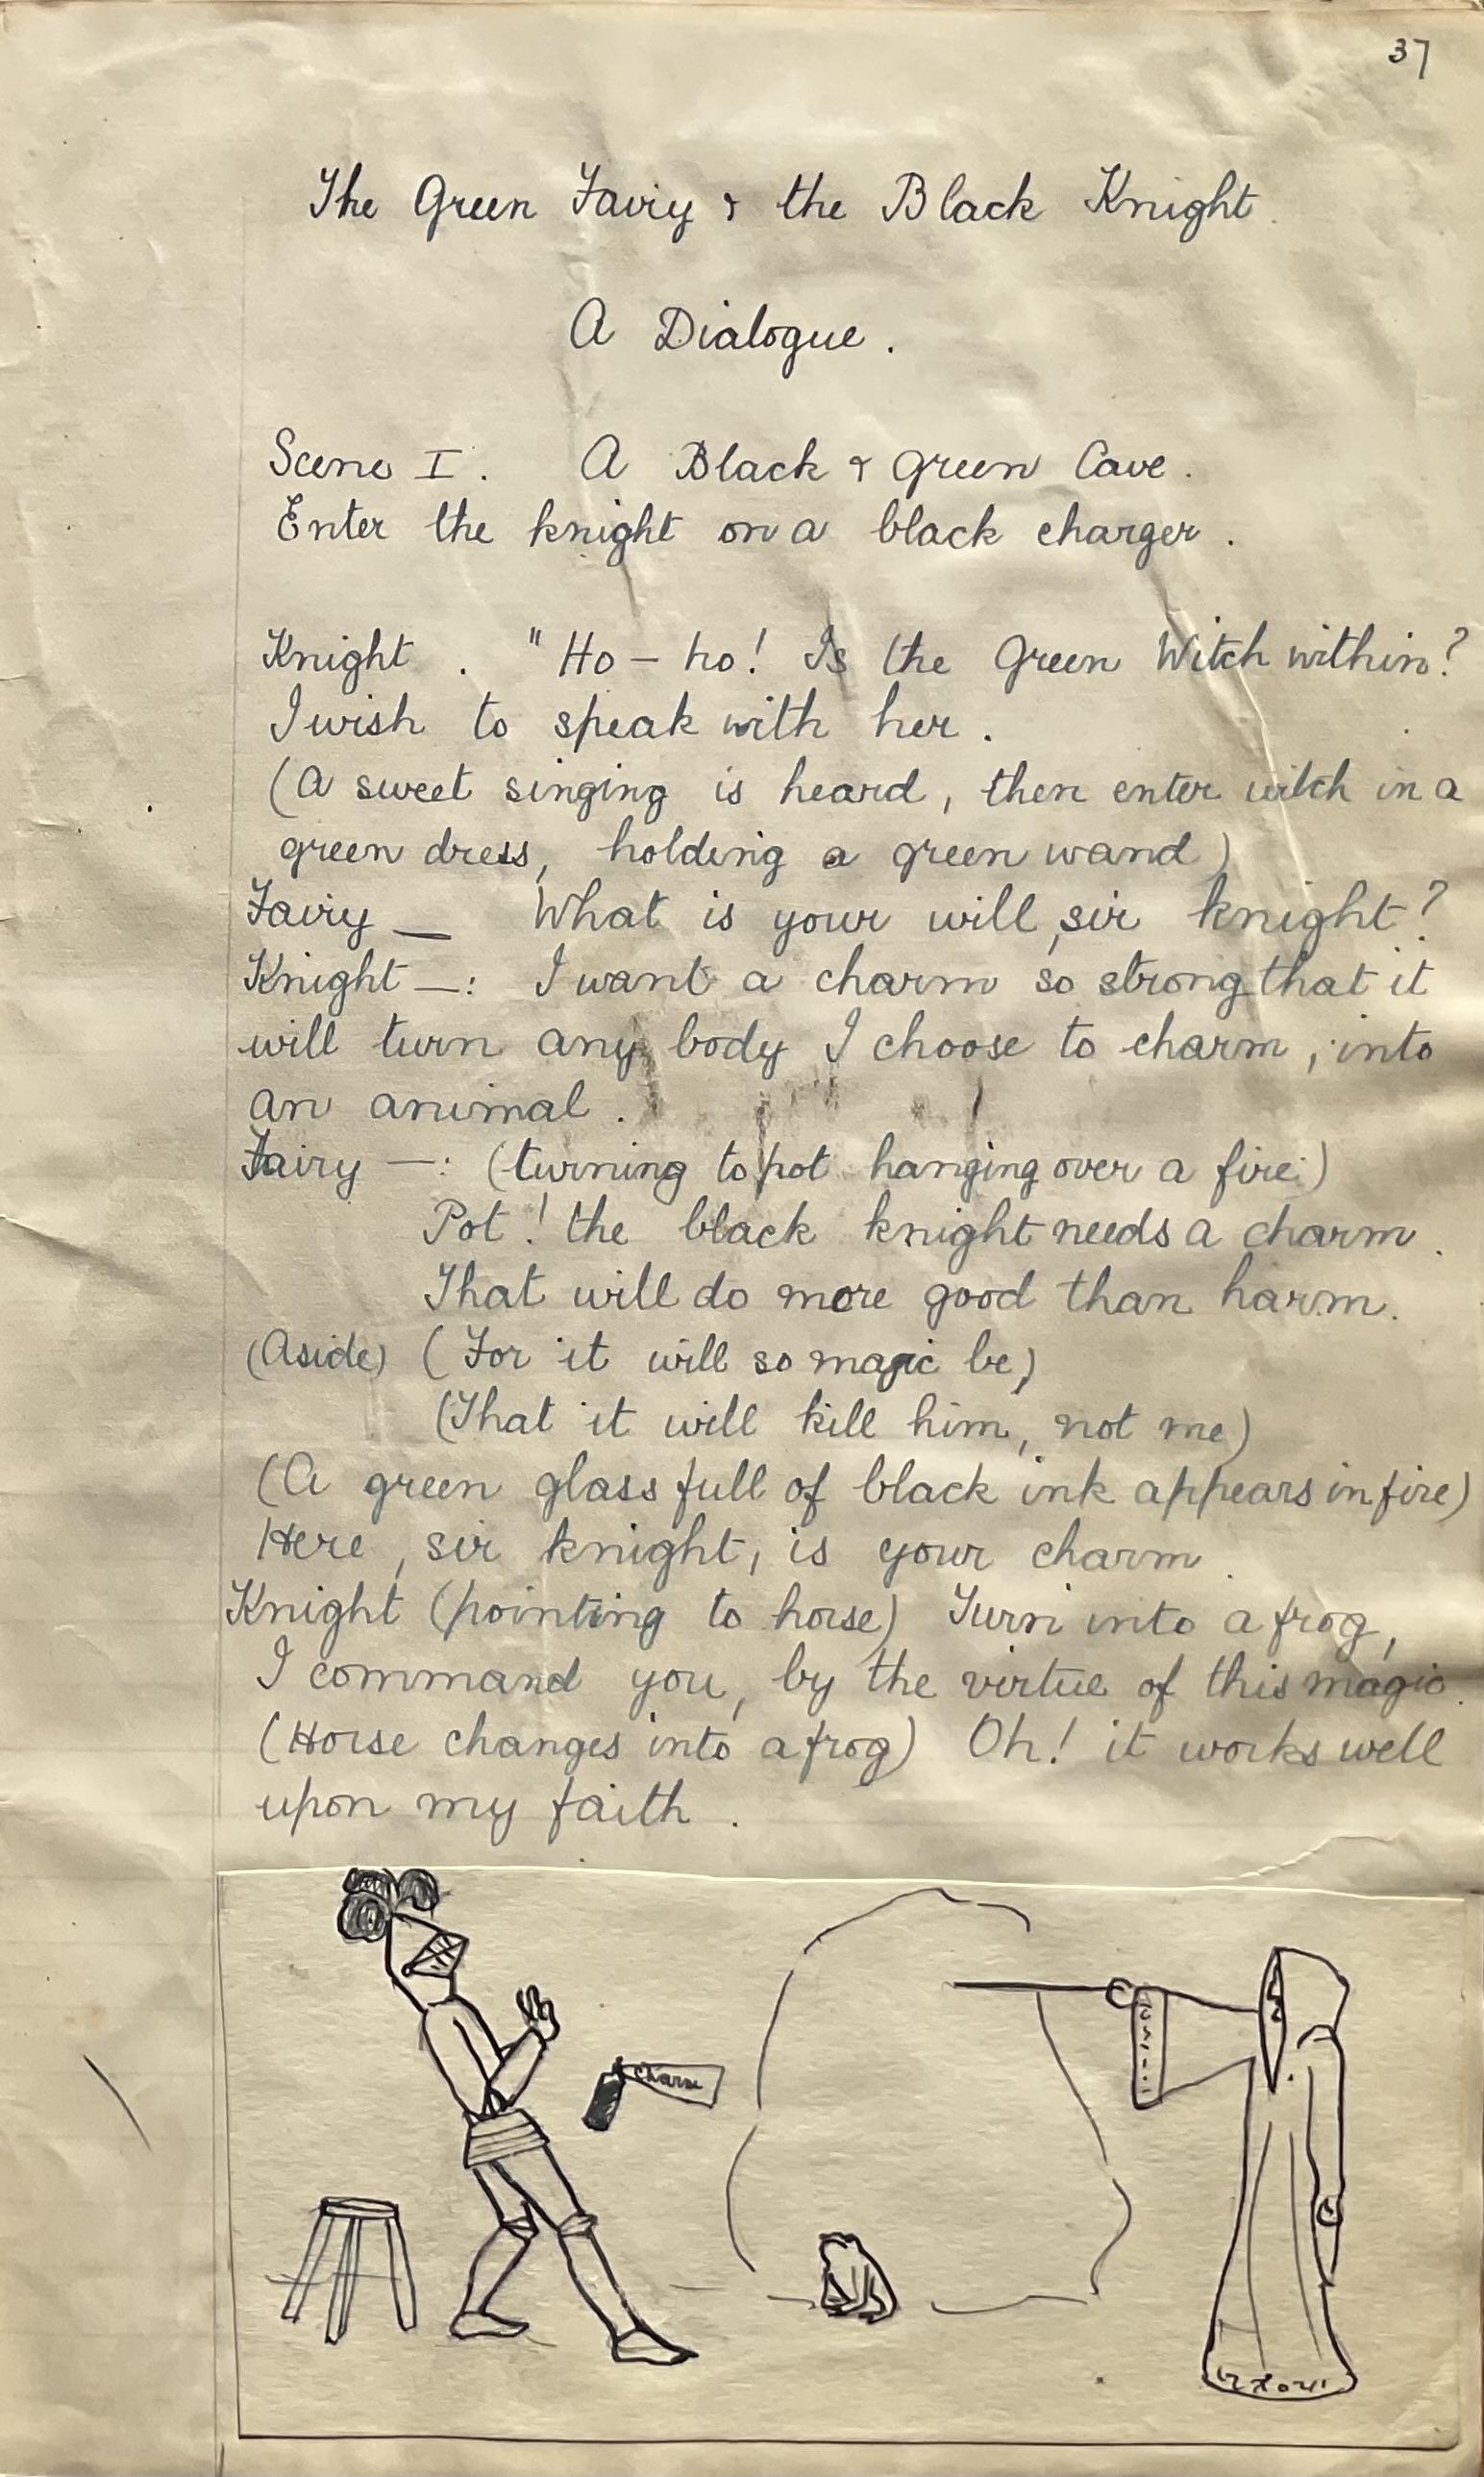 37
The Green Fairy & the Black Knight.
A Dialogue.
Scene I. A Black & Green Cave.
Enter the knight on a black charger.
Knight. "Ho – ho! Is the Green Witch within?
I wish to speak with her.
(A sweet singing is heard, then enter witch in a
green dress, holding a green wand)
Fairy — What is your will, sir knight?
Knight —: I want a charm so strong that it
will turn any body I choose to charm, into
an animal.
Fairy —: (turning to pot hanging over a fire.)
Pot! the black knight needs a charm.
That will do more good than harm.
(Aside) (For it will so magic be,)
(That it will kill him, not me)
(A green glass full of black ink appears in fire)
Here, sir knight, is your charm.
Knight (pointing to horse) Turn into a frog,
I command you, by the virtue of this magic.
(Horse changes into a frog) Oh! it works well
upon my faith.
Charm